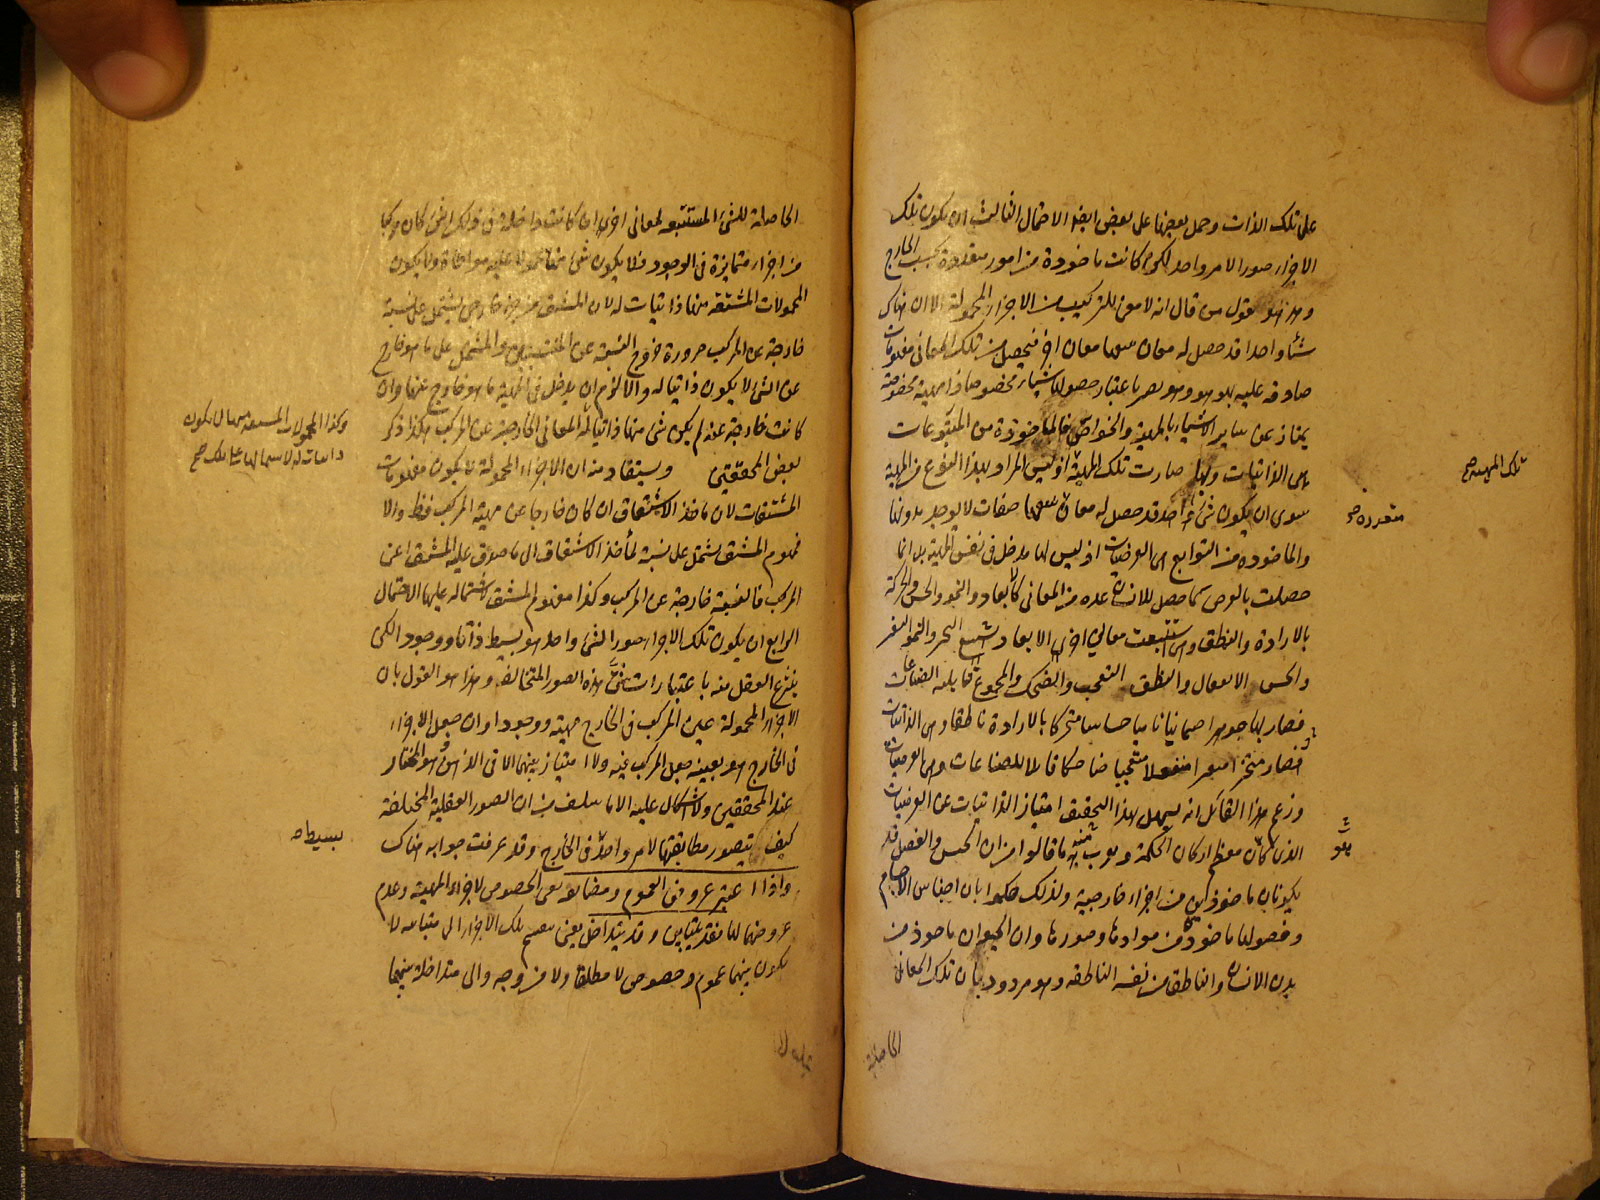 على تلك الذات وحمل بعضها على بعض ايضا الاحتمال الثالث ان يكون تلك
الاجزاء صورا لامر واحد لكن كانت ماخوذة من امور متعددة بحسب الخارج
وهذا هو قول من قال انه لا معنى للتركيب من الاجزاء المحمولة الا ان هناك
شيئا واحدا قد حصل له معان معان اخر فيحصل من تلك المعانى مفهومات
صادقة عليه بهو هو وهو باعتبار حصول اشياء مخصوصة
يمتاز عن ساير الاشياء بالمهية والخواص فالماخوذة من المتبوعات
هى الذاتيات وبها صارت تلك المهية اذ ليس المراد بهذا النوع من المهية
سوى ان يكون شئ واحد قد حصل له معان صفات لا يوجد بدونها
والماخوذة من التوابع هى العرضيات اذ ليس لها مدخل فى نفس المهية بل انما
حصلت بالعرض كما حصل للانسان عدة من المعانى كالابعاد والنمو والحس والحركة
بالارادة والنطق وهى استتبعت معانى اخرى الابعاد التحيز والنمو
والحس الانفعال والنطق التعجب والضحك والمجموع قابلية الصناعات
فصار بها جوهرا جسمانيا ناميا حساسا متحركا بالارادة ناطقا وهى الذاتيات
فصار متحيزا منفعلا متعجبا ضاحكا قابلا للصناعات وهى العرضيات
وزعم هذا القائل انه يسهل بهذا التحقيق امتياز الذاتيات عن العرضيات
الذى كان معظم اركان الحكمة ما قالوا من ان الجنس والفصل قد
يكونان ماخوذين من اجزاء خارجية ولذلك حكموا بان اجناس الاجسام
وفصولها ماخوذة من موادها وصورها وان الحيوان ماخوذ من
بدن الانسان والناطق من نفسه الناطقة وهو مردود بان تلك المعانى
تلك المهية صح
متعددة صح
الحاصلة
الحاصلة للشئ المستتبعة لمعانى اخرى ان كانت داخلة فى ذلك الشئ كان مركبا
من اجزاء متمايزة فى الوجود فلا يكون شئ منها محمولا عليه مواطاة ولا يكون
المحمولات المشتقة منها ذاتيات له لان المشتق من جزء خارجى يشتمل على نسبة
خارجة عن المركب ضرورة خروج النسبة عن المنتسبين والمشتمل على ما هو خارج
عن الشئ لا يكون ذاتيا له والا لزم ان يدخل فى المهية ما هو خارج عنها وان
كانت خارجة عنه لم يكن شئ منها ذاتيا له المعانى الخارجة عن المركب هكذا ذكر
بعض المحققين ويستفاد منه ان الاجزاء المحمولة لا يكون مفهومات
المشتقات لان ماخذ الاشتقاق ان كان خارجا عن مهية المركب فظ والا
فمفهوم المشتق يشتمل على نسبة لماخذ الاشتقاق الى ما صدق عليه المشتق اعنى
المركب فالنسبة خارجة عن المركب وكذا مفهوم المشتق لاشتماله عليها الاحتمال
الرابع ان يكون تلك الاجزاء صورا لشئ واحد هو بسيط ذاتا ووجودا لكن
ينتزع العقل منه باعتبارات شتى هذه الصور المتخالفة وهذا هو القول بان
الاجزاء المحمولة عين المركب فى الخارج مهية ووجودا وان جعل الاجزاء
فى الخارج هو بعينه جعل المركب فيه ولا امتياز بينهما الا فى الذهن وهو المختار
عند المحققين ولا اشكال عليه الا ما سلف من ان الصور العقلية المختلفة
كيف يتصور مطابقتها لامر واحد فى الخارج وقد عرفت جوابه هناك
واذا اعتبر عروض العموم ومضايفه يعنى الخصوص لاجزاء المهية وعدم
عروضهما لها فقد يتباين وقد يتداخل يعنى تلك الاجزاء الى متباينة لا
يكون بينهما عموم وخصوص لا مطلقا ولا من وجه والى متداخلة بينهما
وكذا المحمولات لا يكون
بسيط